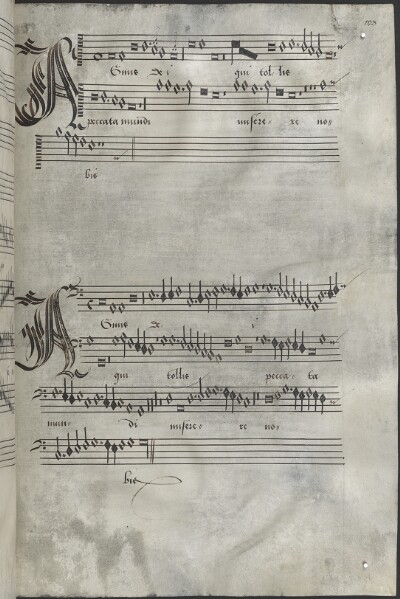 Agnus dei qui tollis
peccata mundi miserere nos
bis
Agnus de i
qui tollis pecca ta
mun di miserere nos
bis